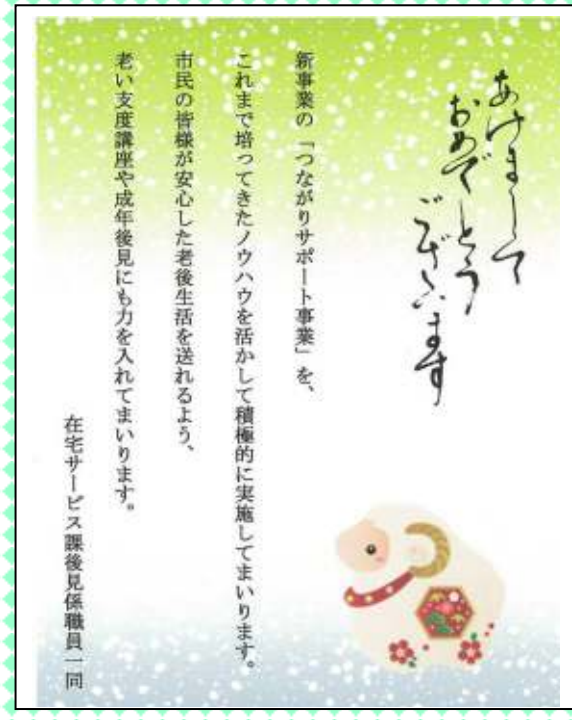 あけまして
おめでとう
ございます
新事業の「つながりサポート事業」を、
これまで培ってきたノウハウを活かして積極的に実施してまいります。
市民の皆様が安心した老後生活を送れるよう、
老い支度講座や成年後見にも力を入れてまいります。
在宅サービス課後見係職員一同